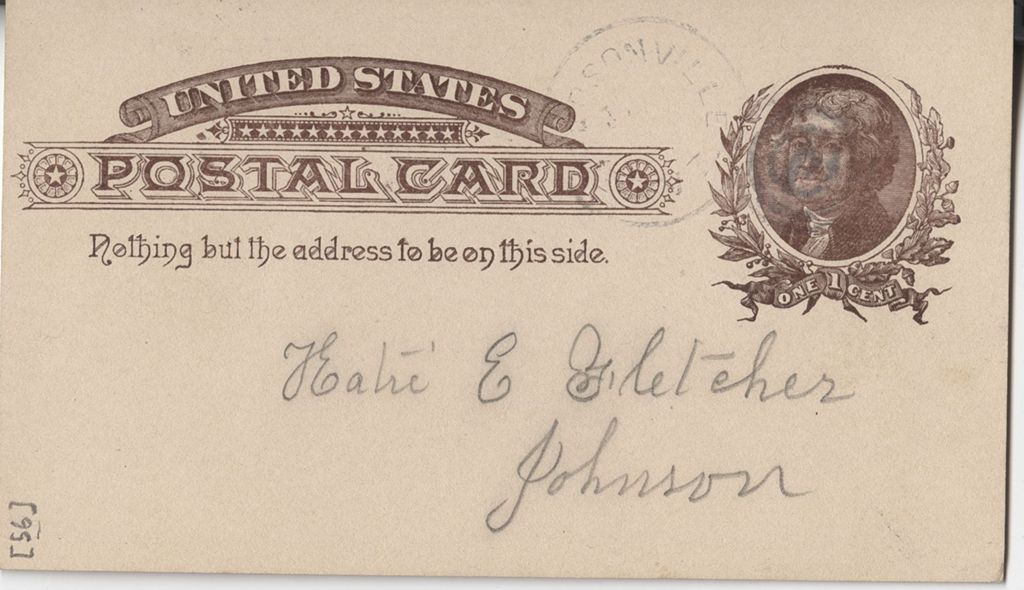 UNITED STATES
POSTAL CARD
Nothing but the address to be on this side.
ONE 1 CENT
Katie E Fletcher
Johnson
[56]